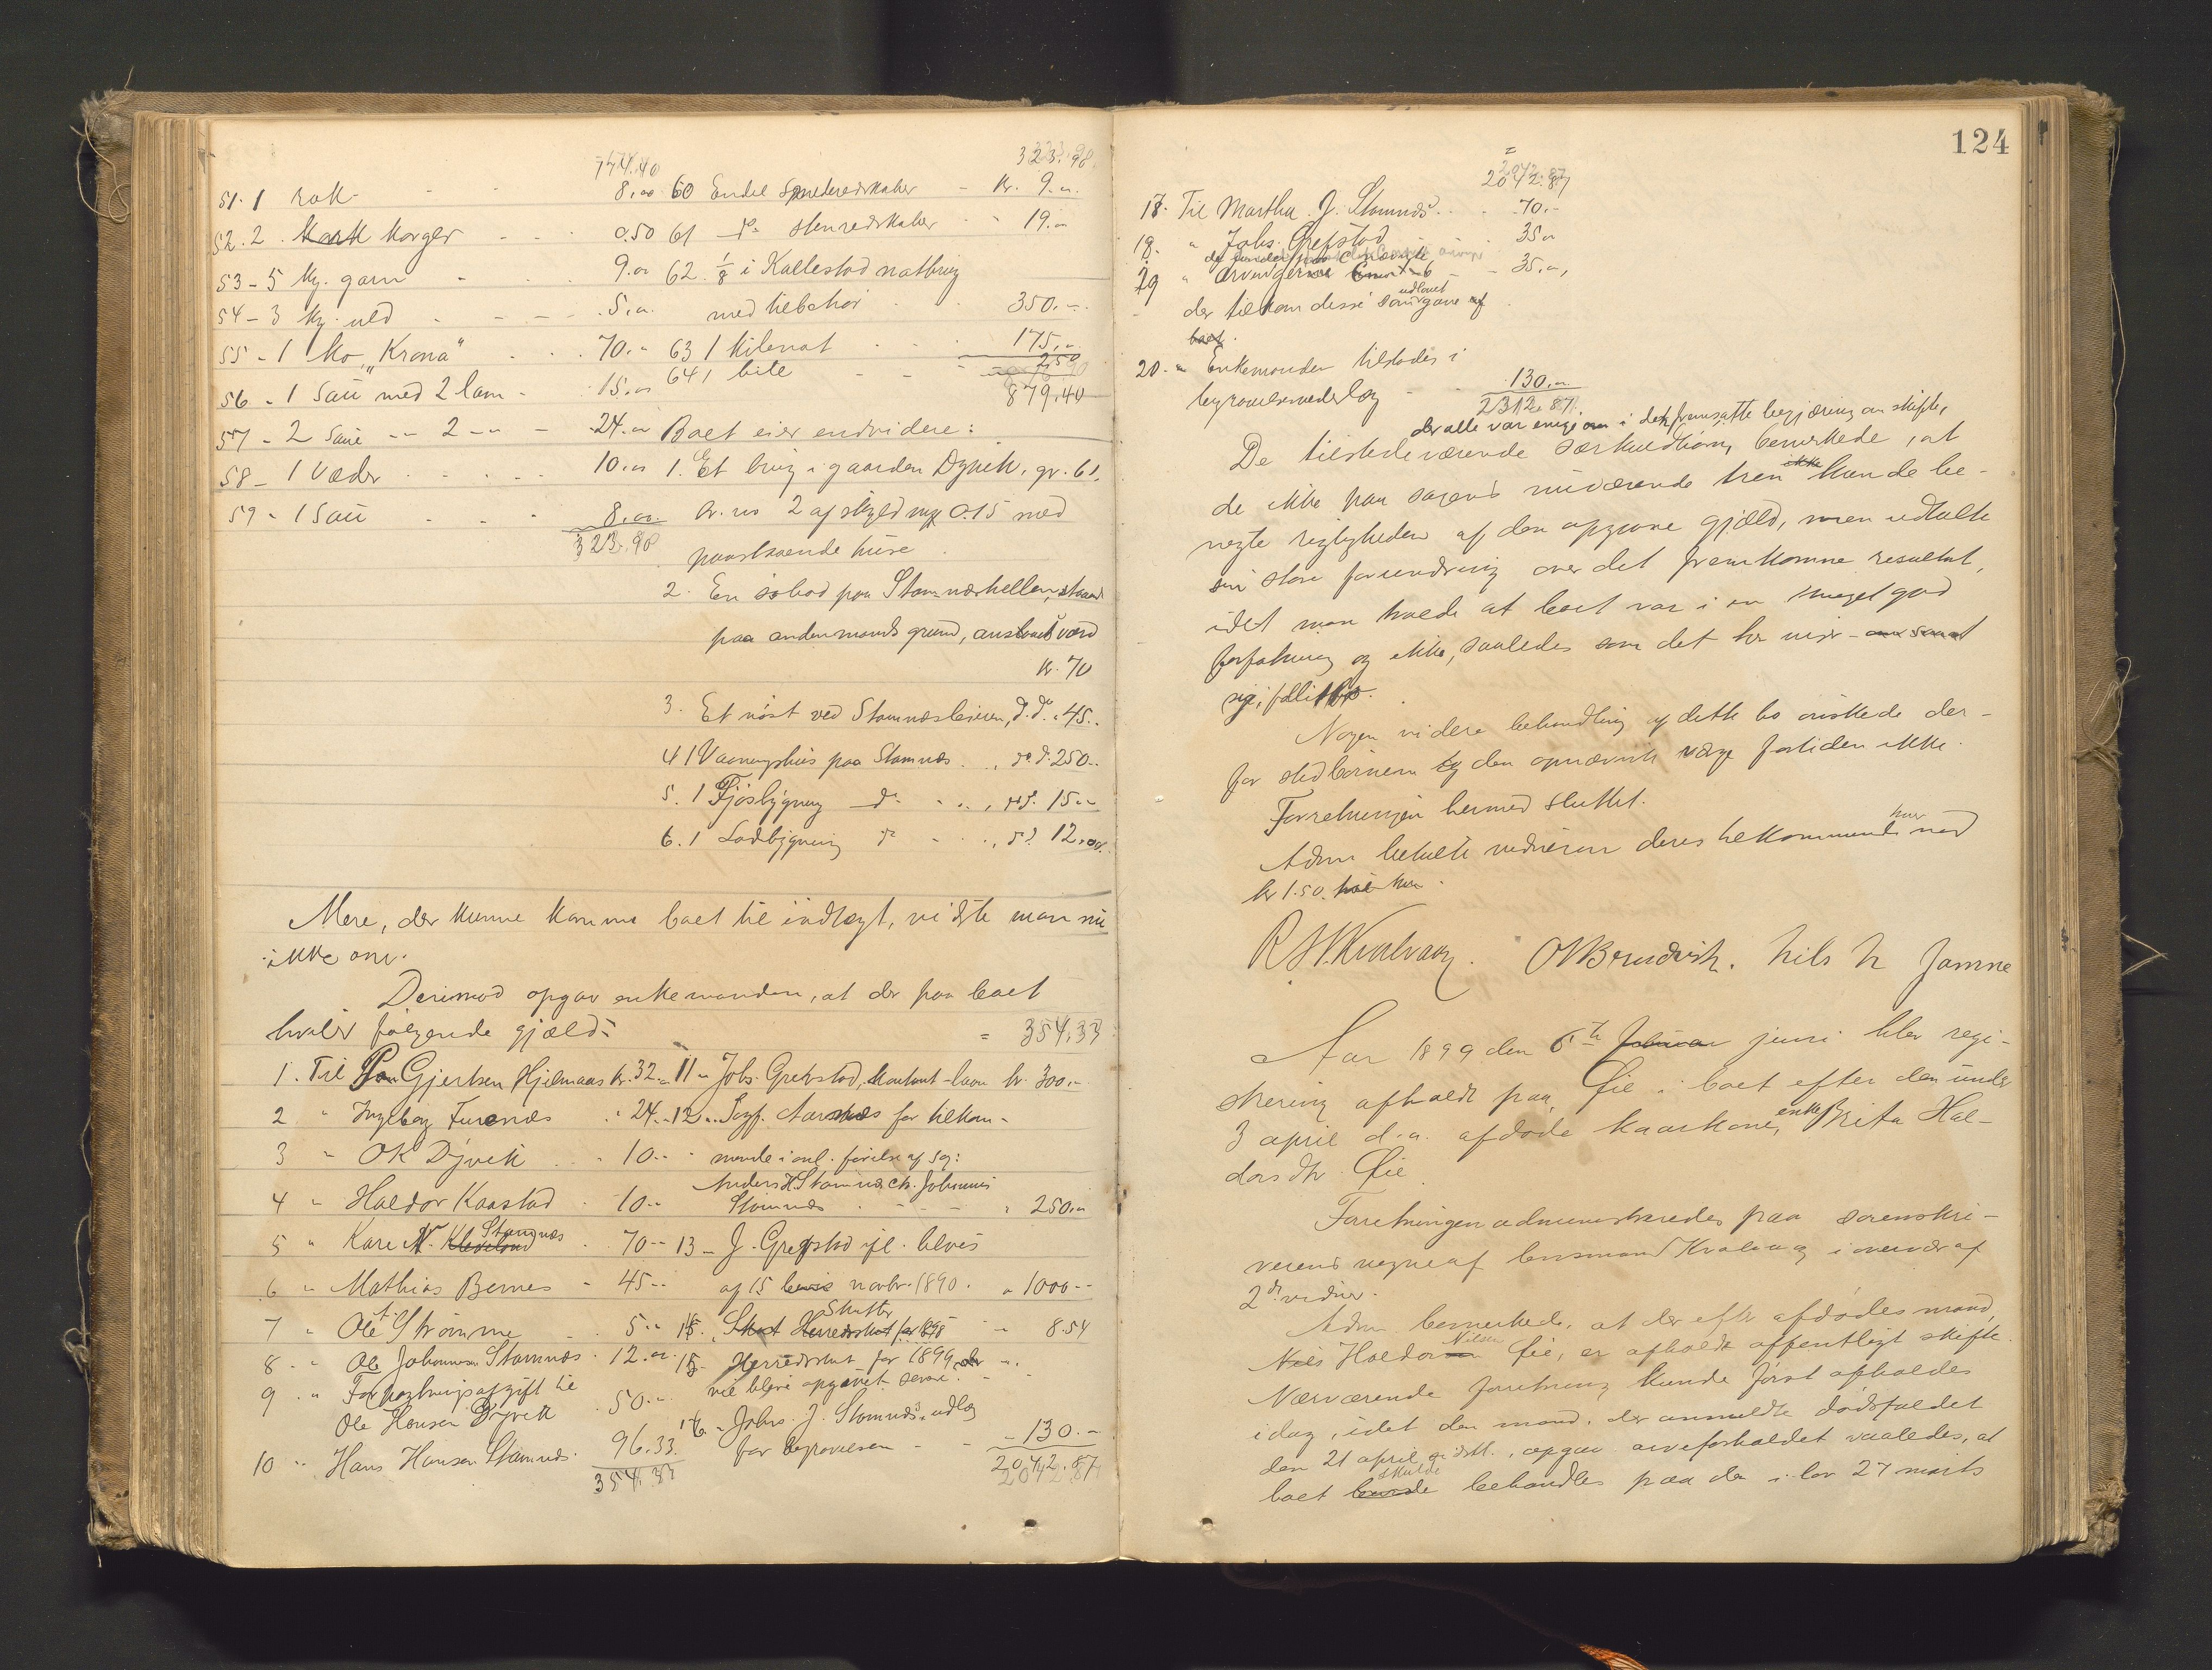 174.40
51. 1 rok 8.00
52. 2 korger 0.50
53 - 5 kg. garn 9.00
54 - 3 kg. uld 5.00
55 - 1 ko „Krona" 70.-
56 - 1 sau med 2 lam 15.00
57 - 2 saue -"- 2 -"- 24.00
58 - 1 væder 10.00
59 - 1 sau 8.00
323.90
323.90
60 Endel smederedskaber kr. 9.-
61 do stenredskaber 19.-
62. 1/8 i Kallestad notbrug
med tilbehør 350.-
63 1 kilenot 175.-
64 1 bile 2.50
879.40
Boet eier endvidere:
1. Et brug i gaarden Dyvik, gr. 61,
br. no 2 af skyld mrk 0.15 med
paastaaende huse.
2. En søbod paa Stamneshellen, staaende
paa andenmands grund, anslaaet værd
kr. 70
3. Et nøst ved Stamnesleiren, do. do. 45..
4 1 Vaaningshus paa Stamnes., do. do. 250..
5. 1 Fjøsbygning do , do. 15.-
6. 1 Ladbygning do , do. 12.00.
Mere, der kunne komme boet til indtægt, vidste man nu
ikke om.
Derimod opgav enkemanden, at der paa boet
hviler følgende gjæld:
= 354.33
1. Til Gjertsen Hjelmaas kr. 32 -
2 " Ingeborg Furenæs " 24. -
3 " O K Dyvik 10.-
4 " Haldor Kaastad 10.-
5 " Kari N. Stamnæs 70.-
6 " Mathias Bernes 45.-
7 " Ole Strømme 5.-
8 " Ole Johannesen Stamnæs 12.00
9 " Forpagtningsafgift til
Ole Hansen Dyvik 50.-
10 " Hans Hansen Stamnæs 96.33
354.33
11 " Johs. Grefstad, kontant laan kr. 300.-
12 " Sagf. for tilkom-
mende i anl. førelse af sag:
Anders H. Stamnæs ctr. Johannes
Stamnæs " 250.00
13 - J. Grefstad ifl. bevis
af 15 novbr. 1890. " 1000.-
Skatter for 1898 " 8.54
15 Herredsskat for 1899, der
vil blive opgivet senere.
16 - Johs. J. Stamnæs, udlæg
for begravelsen - 130.-
2042.87
124
2042.87
17. Til Martha J. Stamnæs 70.-
18. " Johs. Grefstad 35.-
19 " arvingerne 35.-
der tilkom desse som udlovet gave af
boet.
20. " Enkemanden tilstodes i
begravelsesvederlag 130.00
2312.87
der alle var enige i den fremsatte begjæring om skifte,
De tilstedeværende særkuldbørn bemærkede, at
de ikke paa sagens nuværende trin kunde be-
negte rigtigheden af den opgivne gjæld, men udtalte
sin store forundring over det fremkomne resultat,
idet man troede at boet var i en meget god
forfatning og ikke, saaledes som det her viser
sig, fallit.
Nogen videre behandling af dette bo ønskede der-
for stedbørnene og den opnævnte værge fortiden ikke.
Forretningen hermed sluttet.
Adm. betalte vidnerne deres tilkommende med
kr 1.50. hver
R H Kvalvaag. O N Brudvik. Nils N Jamne
Aar 1899 den 6te juni blev regi-
strering afholdt paa Øie i boet efter den under
3 april d.a. afdøde kaarkone, enke Brita Hal-
dorsdtr Øie.
Forretningen administreredes paa sorenskri-
verens vegne af lensmand Kvalvaag i overvær af
2de vidner.
Adm. bemerkede, at der efter afdødes mand,
Haldor Nilsen Øie, er afholdt offentligt skifte.
Nærværende forretning kunde først afholdes
idag, idet den mand, der anmeldte dødsfaldet
den 21 april sidstl., opgav arveforholdet saaledes, at
boet skulde behandles paa den i lov 27 marts